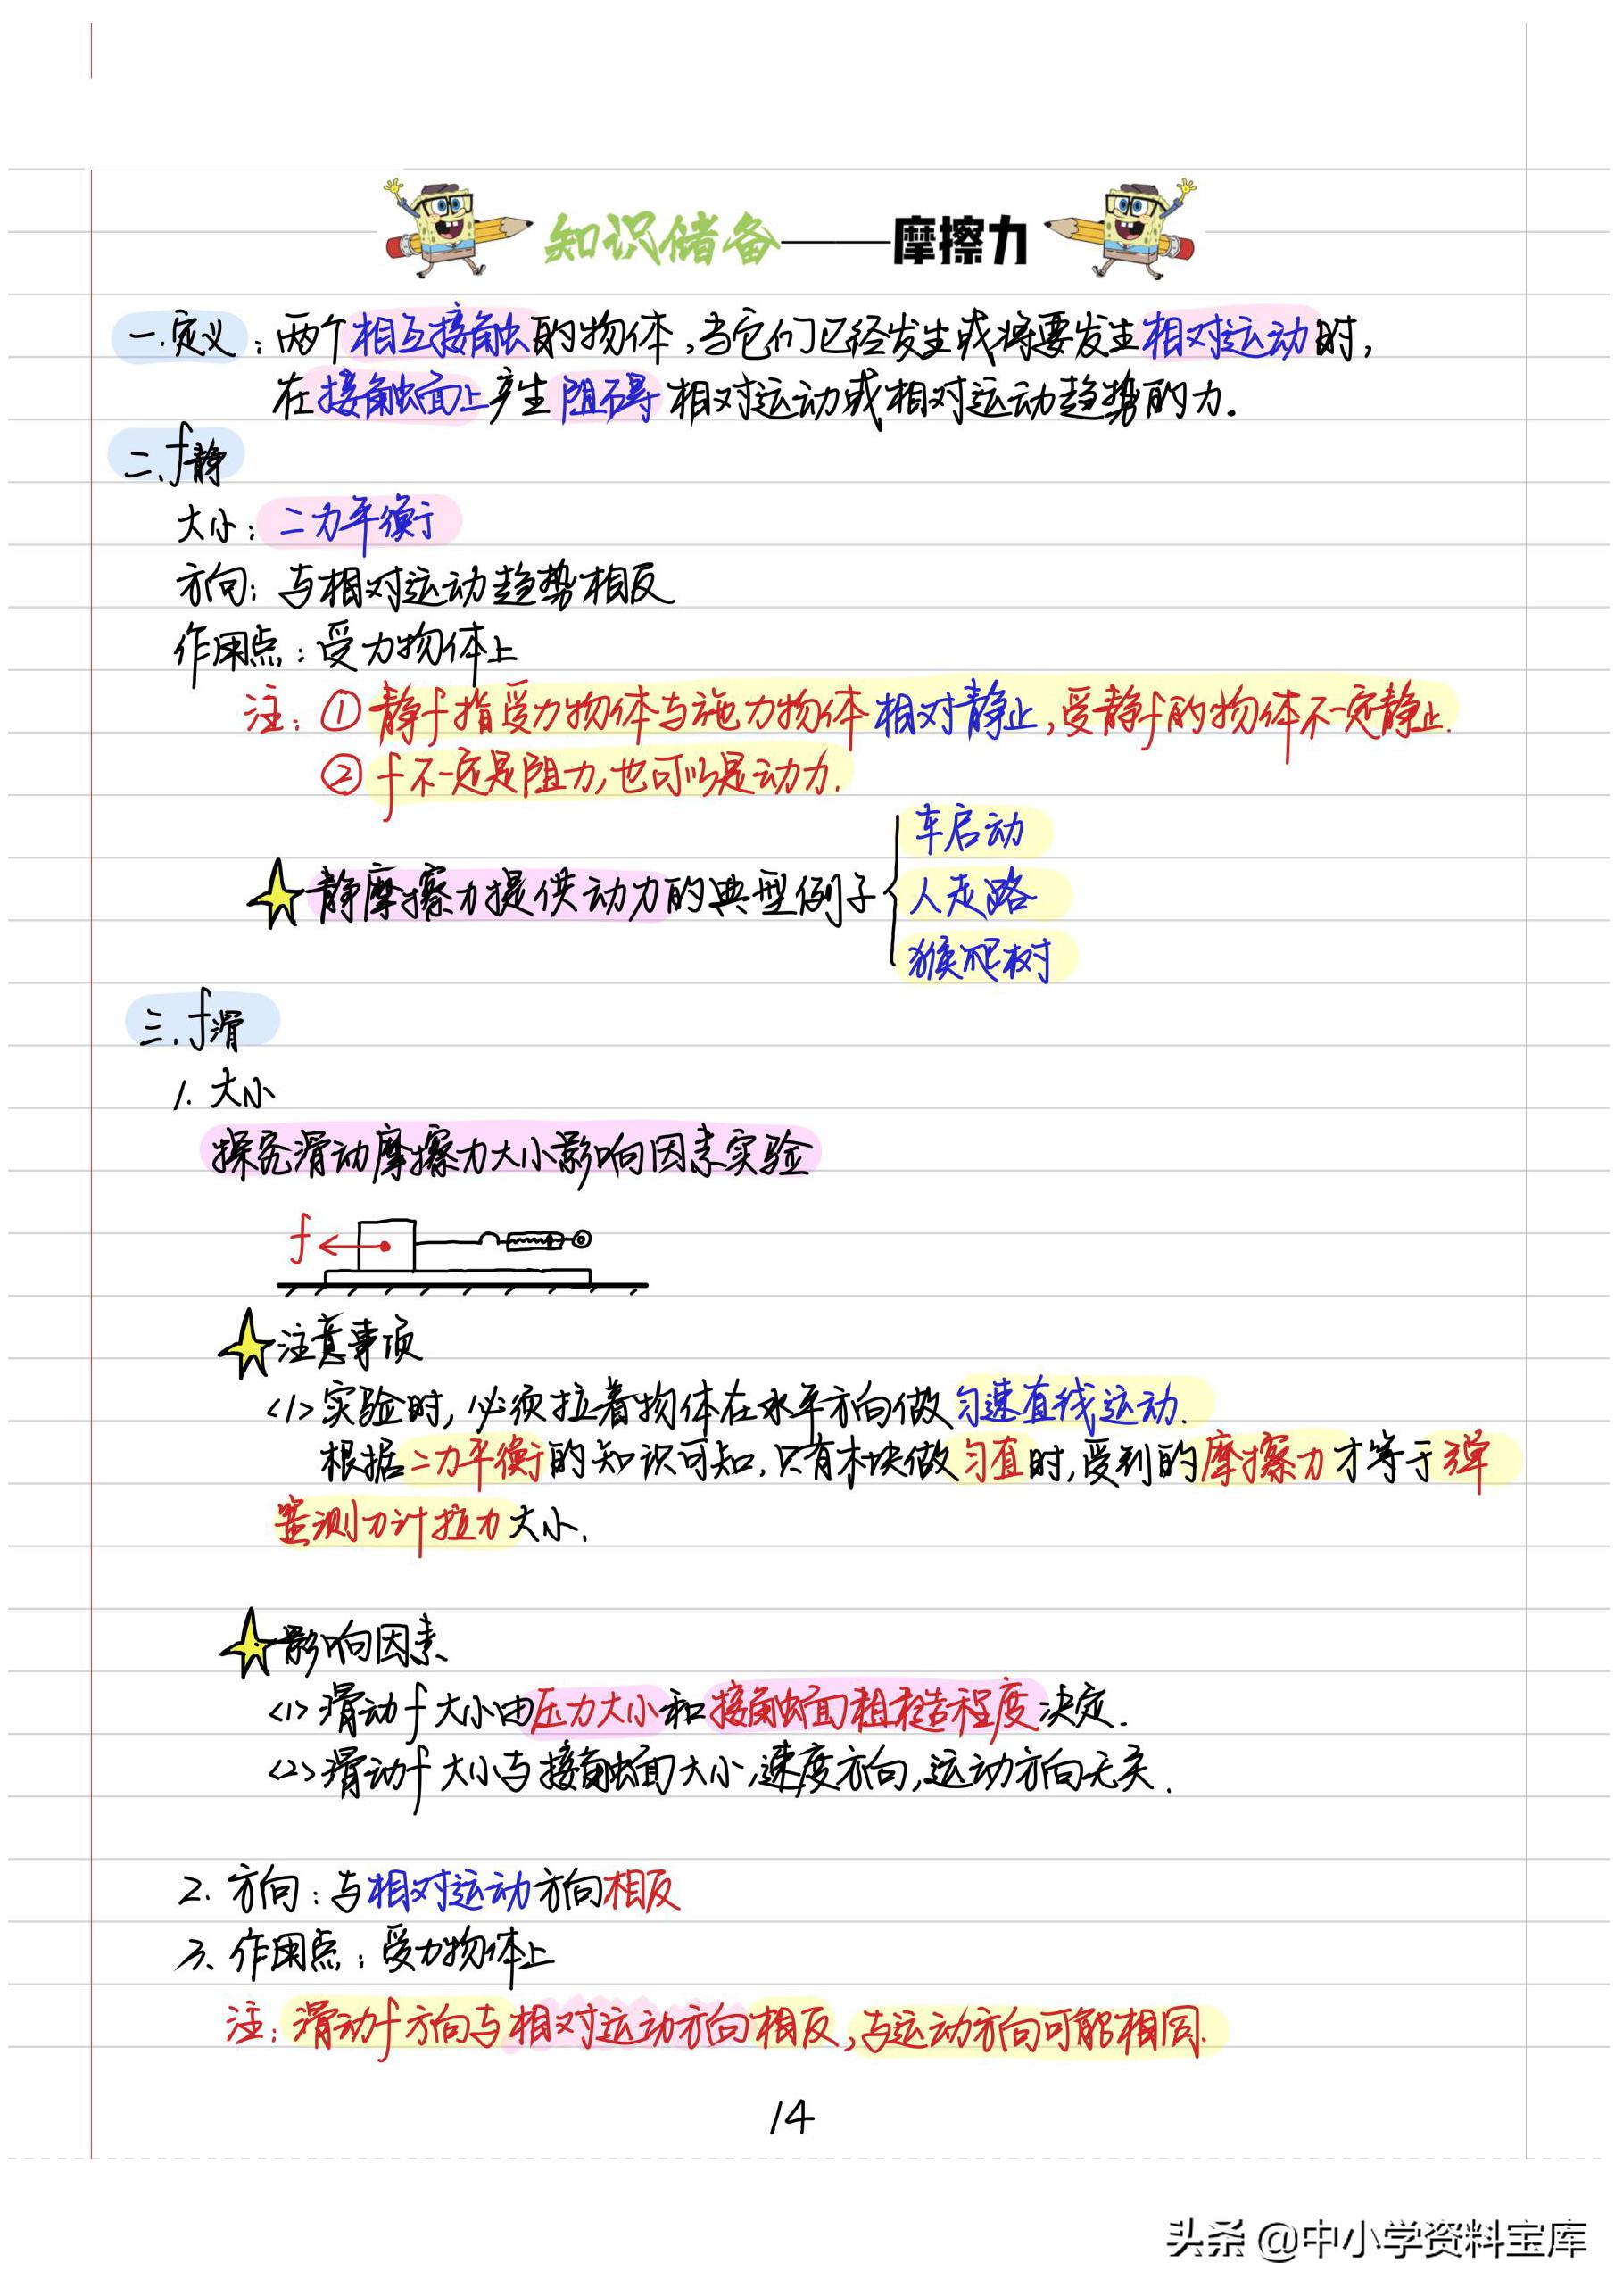 知识储备——摩擦力
一.定义:两个相互接触的物体,当它们已经发生或将要发生相对运动时,
在接触面上产生阻碍相对运动或相对运动趋势的力。
二.f静
大小:二力平衡
方向:与相对运动趋势相反
作用点:受力物体上
注:①静f指受力物体与施力物体相对静止,受静f的物体不一定静止.
②f不一定是阻力,也可以是动力.
静摩擦力提供动力的典型例子
车启动
人走路
猴爬树
三.f滑
1.大小
探究滑动摩擦力大小影响因素实验
f
注意事项
<1>实验时,必须拉着物体在水平方向做匀速直线运动.
根据二力平衡的知识可知,只有木块做匀直时,受到的摩擦力才等于弹
簧测力计拉力大小.
影响因素
<1>滑动f大小由压力大小和接触面粗糙程度决定.
<2>滑动f大小与接触面大小,速度方向,运动方向无关.
2.方向:与相对运动方向相反
3、作用点:受力物体上
注:滑动f方向与相对运动方向相反,与运动方向可能相同.
14
头条@中小学资料宝库